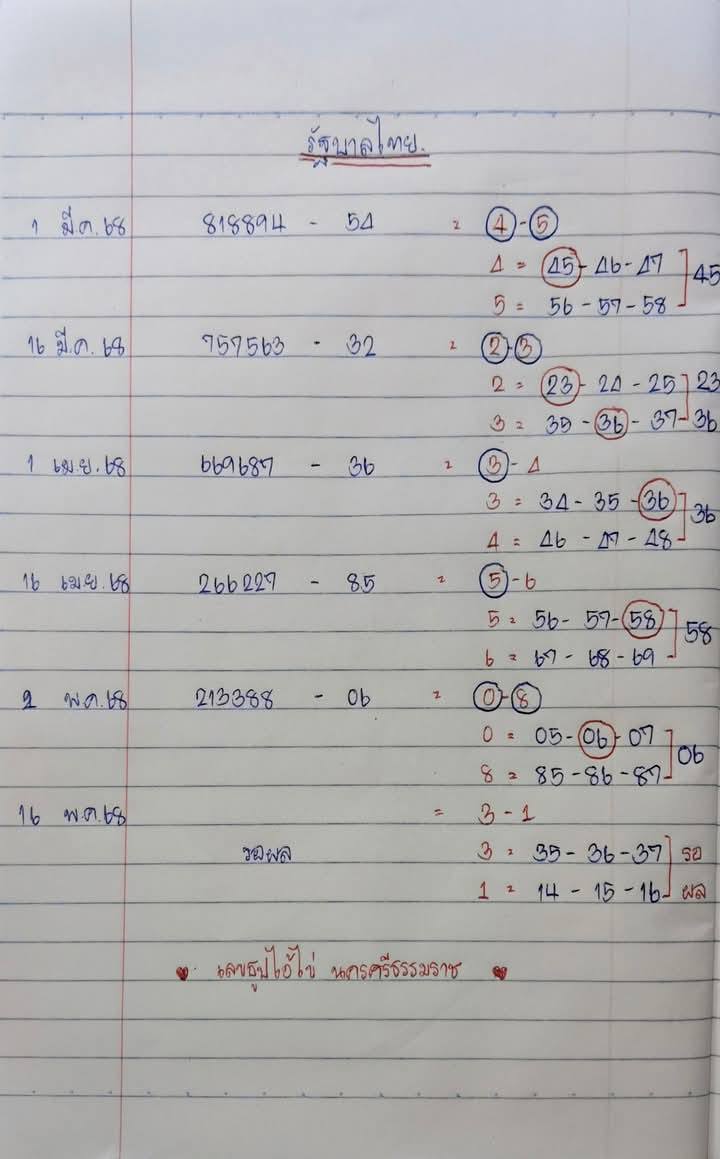 รัฐบาลไทย.
1 มี.ค.68 818894 - 54 = 4-5
4 = 45-46-47
5 = 56-57-58 ] 45
16 มี.ค. 68 757563 - 32 = 2-3
2 = 23-24-25 ] 23
3 = 35-36-37 36
1 เม.ย.68 669687 - 36 = 3-4
3 = 34-35-36
4 = 46-47-48 ] 36
16 เม.ย.68 266227 - 85 = 5-6
5 = 56-57-58
6 = 67-68-69 ] 58
2 พ.ค.68 213388 - 06 = 0-8
0 = 05-06-07
8 = 85-86-87 ] 06
16 พ.ค.68 = 3-1
รอผล 3 = 35-36-37 ] รอ
1 = 14-15-16 ผล
♥ เลขธูปไอ้ไข่ นครศรีธรรมราช ♥